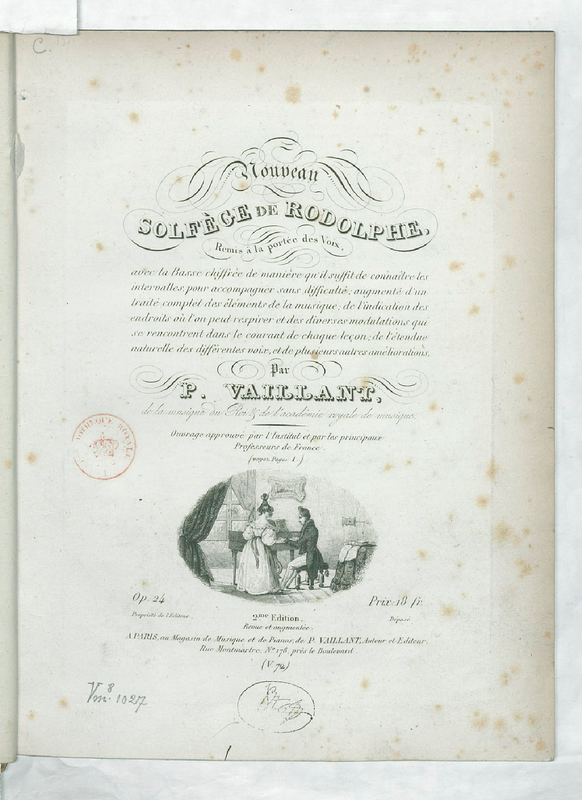 C.
Nouveau
SOLFÈGE DE RODOLPHE,
Remis à la portée des Voix,
avec la Basse chiffrée de manière qu'il suffit de connaître les
intervalles, pour accompagner sans difficulté; augmenté d'un
traité complet des éléments de la musique; de l'indication des
endroits où l'on peut respirer et des diverses modulations qui
se rencontrent dans le courant de chaque leçon; de l'étendue
naturelle des différentes voix, et de plusieurs autres améliorations,
Par
P. VAILLANT,
de la musique du Roi & de l'académie royale de musique.
Ouvrage approuvé par l'Institut et par les principaux
Professeurs de France.
(voyez Page 1.)
ROYALE
Op. 24
Prix 18 fr.
Propriété de l'Editeur.
Déposé
2me Edition.
Revue et augmentée.
A PARIS, au Magasin de Musique et de Pianos, de P. VAILLANT, Auteur et Editeur.
Rue Montmartre, No. 178, près le Boulevard.
(V. 72)
Vm.8 1027